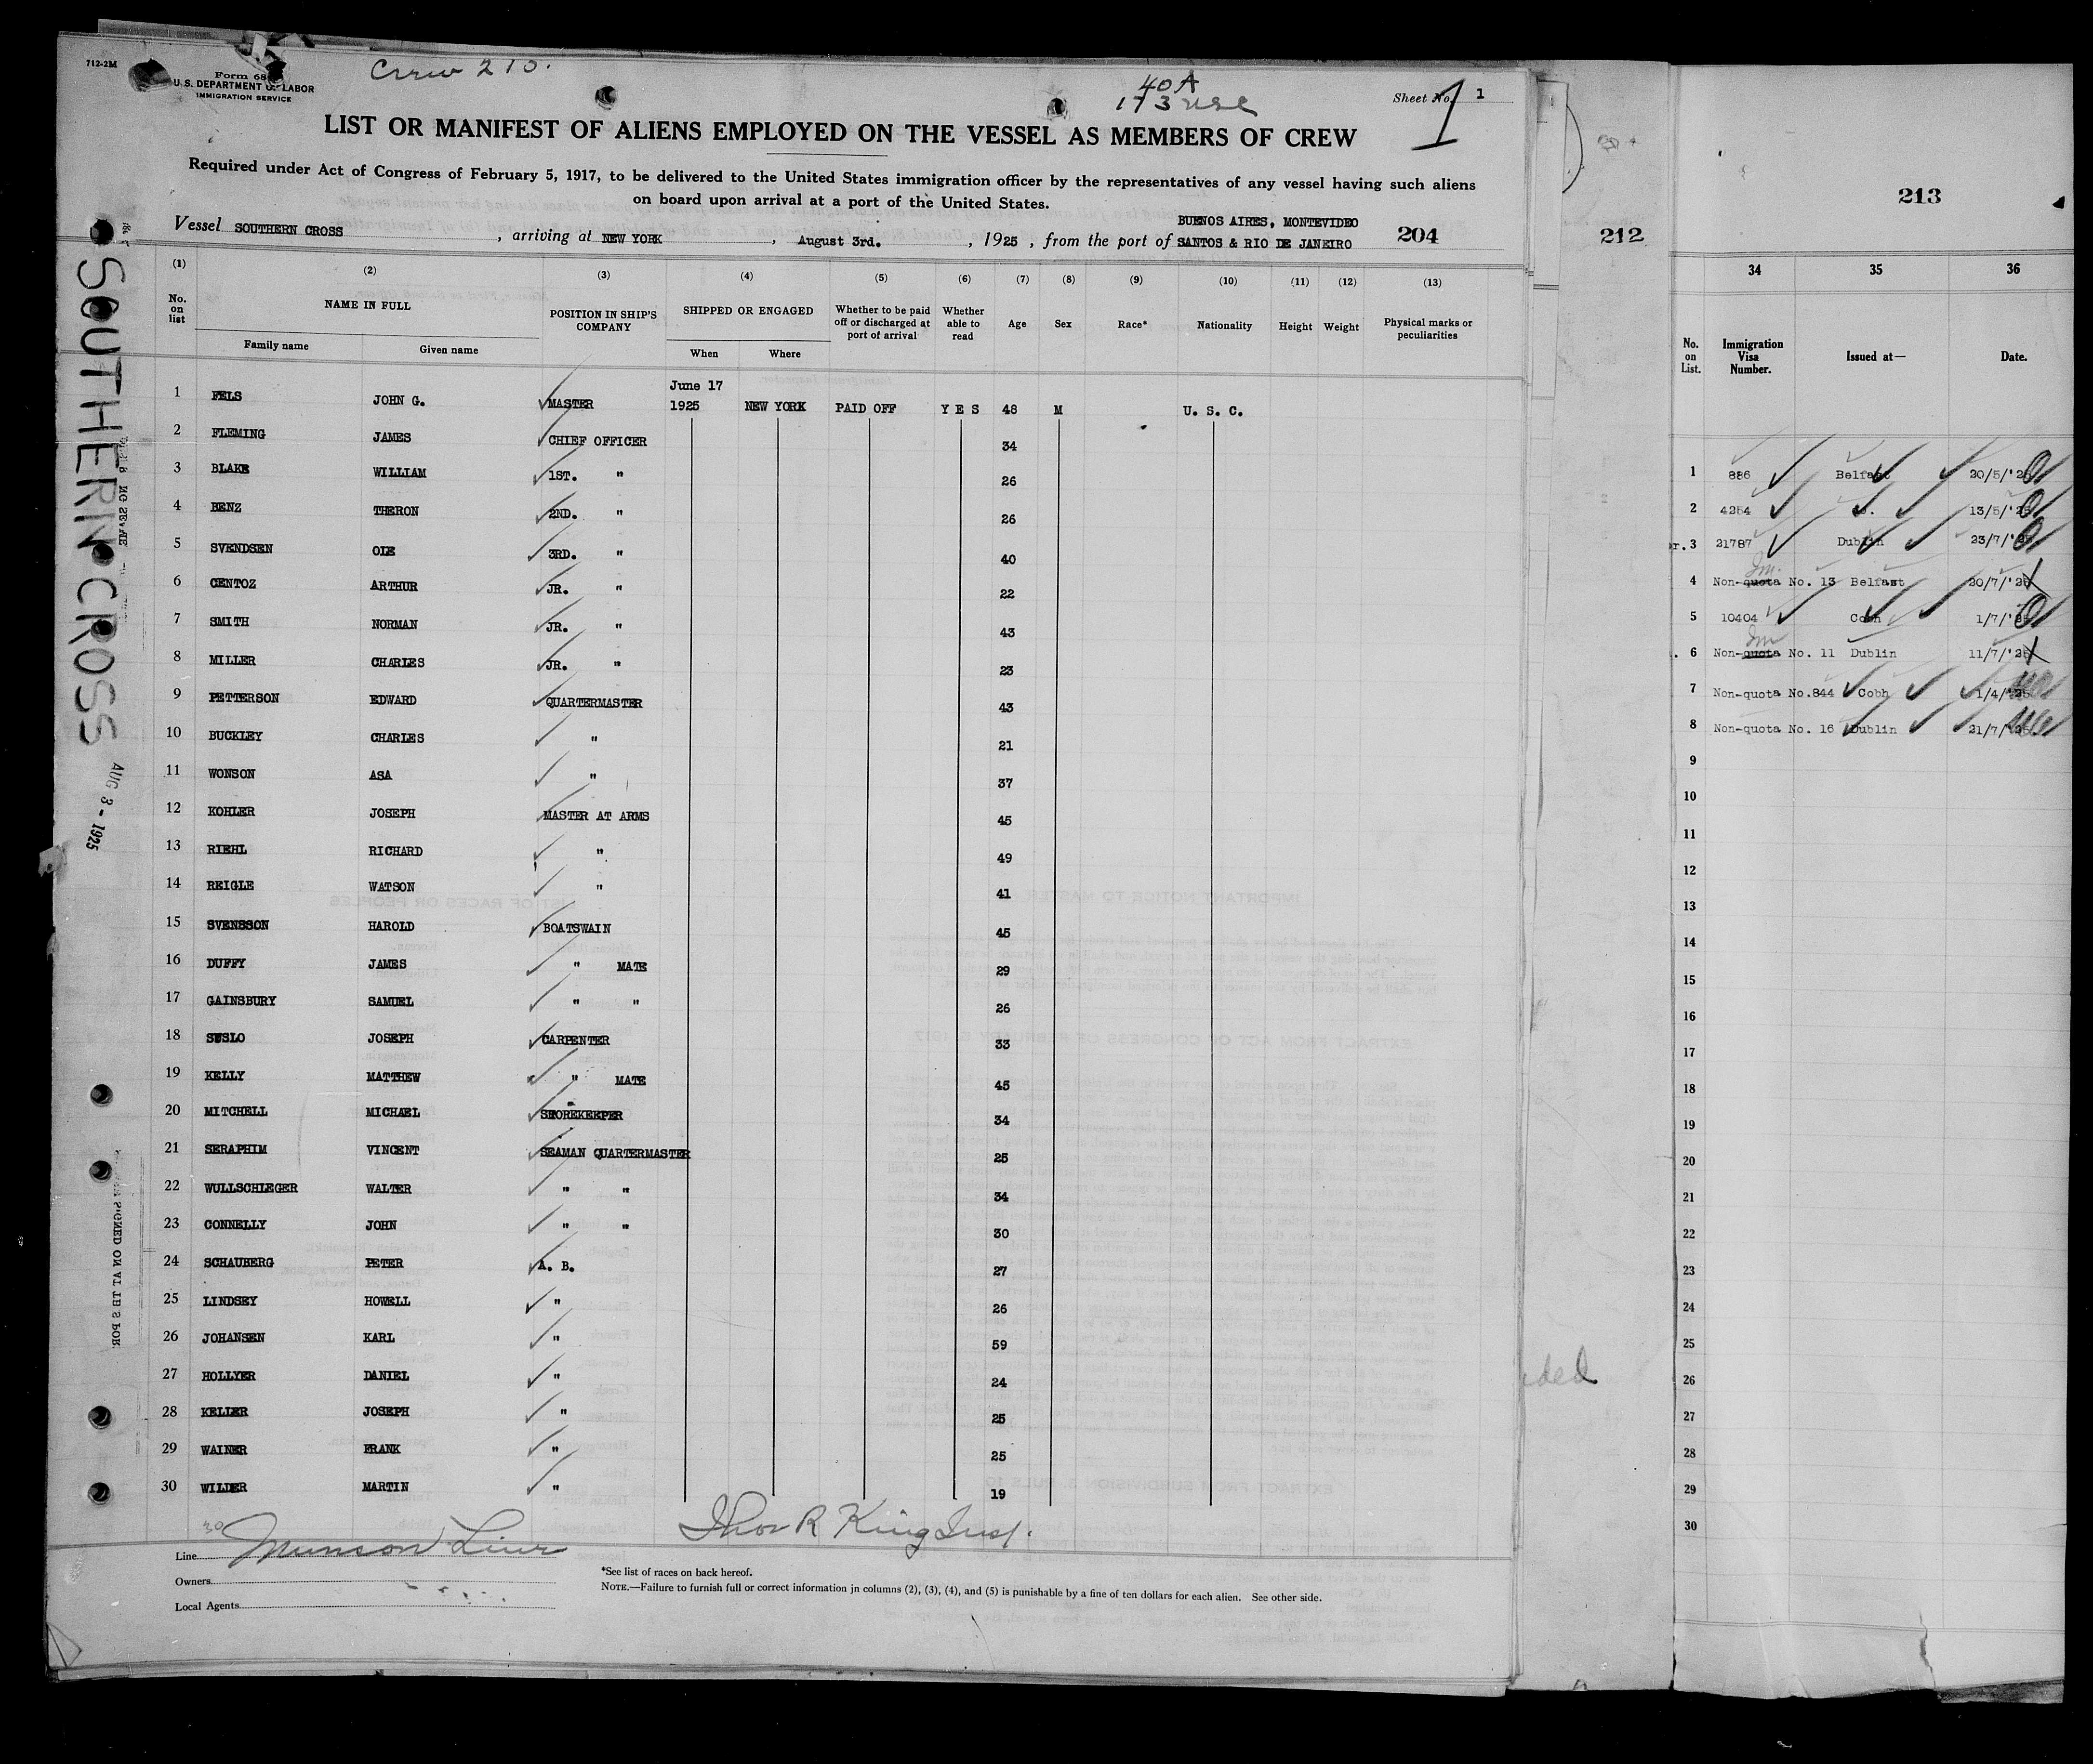 712-2M
Crew 213.
Form 68
U. S. DEPARTMENT OF LABOR
IMMIGRATION SERVICE
40 A
173 USC
Sheet No. 1
1
LIST OR MANIFEST OF ALIENS EMPLOYED ON THE VESSEL AS MEMBERS OF CREW
Required under Act of Congress of February 5, 1917, to be delivered to the United States immigration officer by the representatives of any vessel having such aliens
on board upon arrival at a port of the United States.
Vessel SOUTHERN CROSS , arriving at NEW YORK , August 3rd. , 1925 , from the port of BUENOS AIRES, MONTEVIDEO
SANTOS & RIO DE JANEIRO
204
(1) (2) (3) (4) (5) (6) (7) (8) (9) (10) (11) (12) (13)
No. on list NAME IN FULL POSITION IN SHIP'S COMPANY SHIPPED OR ENGAGED Whether to be paid off or discharged at port of arrival Whether able to read Age Sex Race* Nationality Height Weight Physical marks or peculiarities
Family name Given name When Where
1 FELS JOHN G. MASTER June 17 1925 NEW YORK PAID OFF YES 48 M U. S. C.
2 FLEMING JAMES CHIEF OFFICER 34
3 BLAKE WILLIAM 1ST. " 26
4 BENZ THERON 2ND. " 26
5 SVENDSEN OLE 3RD. " 40
6 CENTOZ ARTHUR JR. " 22
7 SMITH NORMAN JR. " 43
8 MILLER CHARLES JR. " 23
9 PETTERSON EDWARD QUARTERMASTER 43
10 BUCKLEY CHARLES " 21
11 WONSON ASA " 37
12 KOHLER JOSEPH MASTER AT ARMS 45
13 RIEHL RICHARD " 49
14 REIGLE WATSON " 41
15 SVENSSON HAROLD BOATSWAIN 45
16 DUFFY JAMES " MATE 29
17 GAINSBURY SAMUEL " " 26
18 SUSLO JOSEPH CARPENTER 33
19 KELLY MATTHEW " MATE 45
20 MITCHELL MICHAEL STOREKEEPER 34
21 SERAPHIM VINCENT SEAMAN QUARTERMASTER 25
22 WULLSCHLEGER WALTER " " 34
23 CONNELLY JOHN " " 30
24 SCHAUBERG PETER A. B. 27
25 LINDSEY HOWELL " 26
26 JOHANSEN KARL " 59
27 HOLLYER DANIEL " 24
28 KELLER JOSEPH " 25
29 WAINER FRANK " 25
30 WILDER MARTIN " 19
30
Thos R King Insp.
Line Munson Line
Owners
Local Agents
*See list of races on back hereof.
NOTE.—Failure to furnish full or correct information in columns (2), (3), (4), and (5) is punishable by a fine of ten dollars for each alien. See other side.
SOUTHERN CROSS
AUG 3 - 1925
212
213
34 35 36
No. on List. Immigration Visa Number. Issued at— Date.
1 886 Belfast 20/5/'25
2 4254 13/5/'25
3 21787 Dublin 23/7/'25
4 Non-quota No. 13 Belfast 20/7/'25
5 10404 Cobh 1/7/'25
6 Non-quota No. 11 Dublin 11/7/'25
7 Non-quota No.844 Cobh 1/4/'25
8 Non-quota No. 16 Dublin 21/7/'25
9
10
11
12
13
14
15
16
17
18
19
20
21
22
23
24
25
26
27
28
29
30